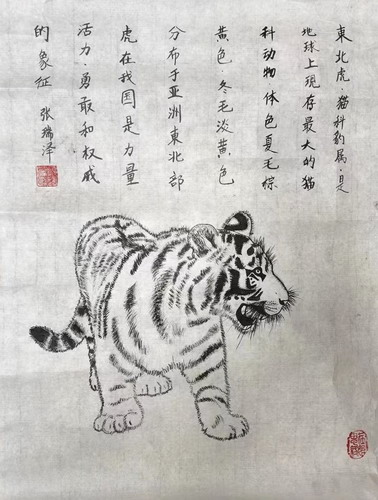 東北虎,猫科豹属.是
地球上現存最大的猫
科动物 体色夏毛棕
黄色.冬毛淡黄色
分布于亚洲東北部
虎在我国是力量
活力.勇敢和权威
的象征 张瑞泽